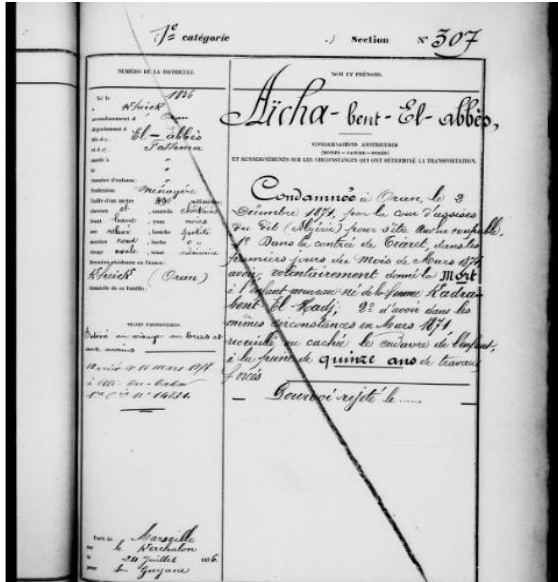 1e catégorie Section N° 307
NUMÉRO DE LA MATRICULE.
Né le 1836
à Kheick
arrondissement d Oran
département d
fils de El-abbès
et de Fathma
marié à "
le "
nombre d'enfants "
Profession Ménagère
Taille d'un mètre 490 millimètres
cheveux et sourcils châtains
front haut, yeux noirs
nez relevé, bouche petite
menton rond, barbe "
visage ovale, teint
Dernière résidence en France :
Kheick (Oran)
Domicile de sa famille :
SIGNES PARTICULIERS.
Tatouée au visage au bras et
aux mains
Parti de Marseille
sur le
le 24 Juillet 1876
pour la Guyane
NOM ET PRÉNOMS.
Aïcha-bent-El-abbès,
CONDAMNATIONS ANTÉRIEURES
ET RENSEIGNEMENTS SUR LES CIRCONSTANCES QUI ONT DÉTERMINÉ LA TRANSPORTATION.
Condamnée à Oran, le 2
Décembre 1871, par la cour d'assises
du dit (Algérie) pour s'être rendue coupable,
1° Dans la contrée de Tiaret, dans les
premiers jours du Mois de Mars 1871
avoir volontairement donné la Mort
à l'enfant nouveau né de la femme Kadra-
bent-El-Hadj; 2° d'avoir dans les
mêmes circonstances en Mars 1871
recueilli ou caché le cadavre de l'enfant,
à la peine de quinze ans de travaux
forcés
Pourvoi rejeté le